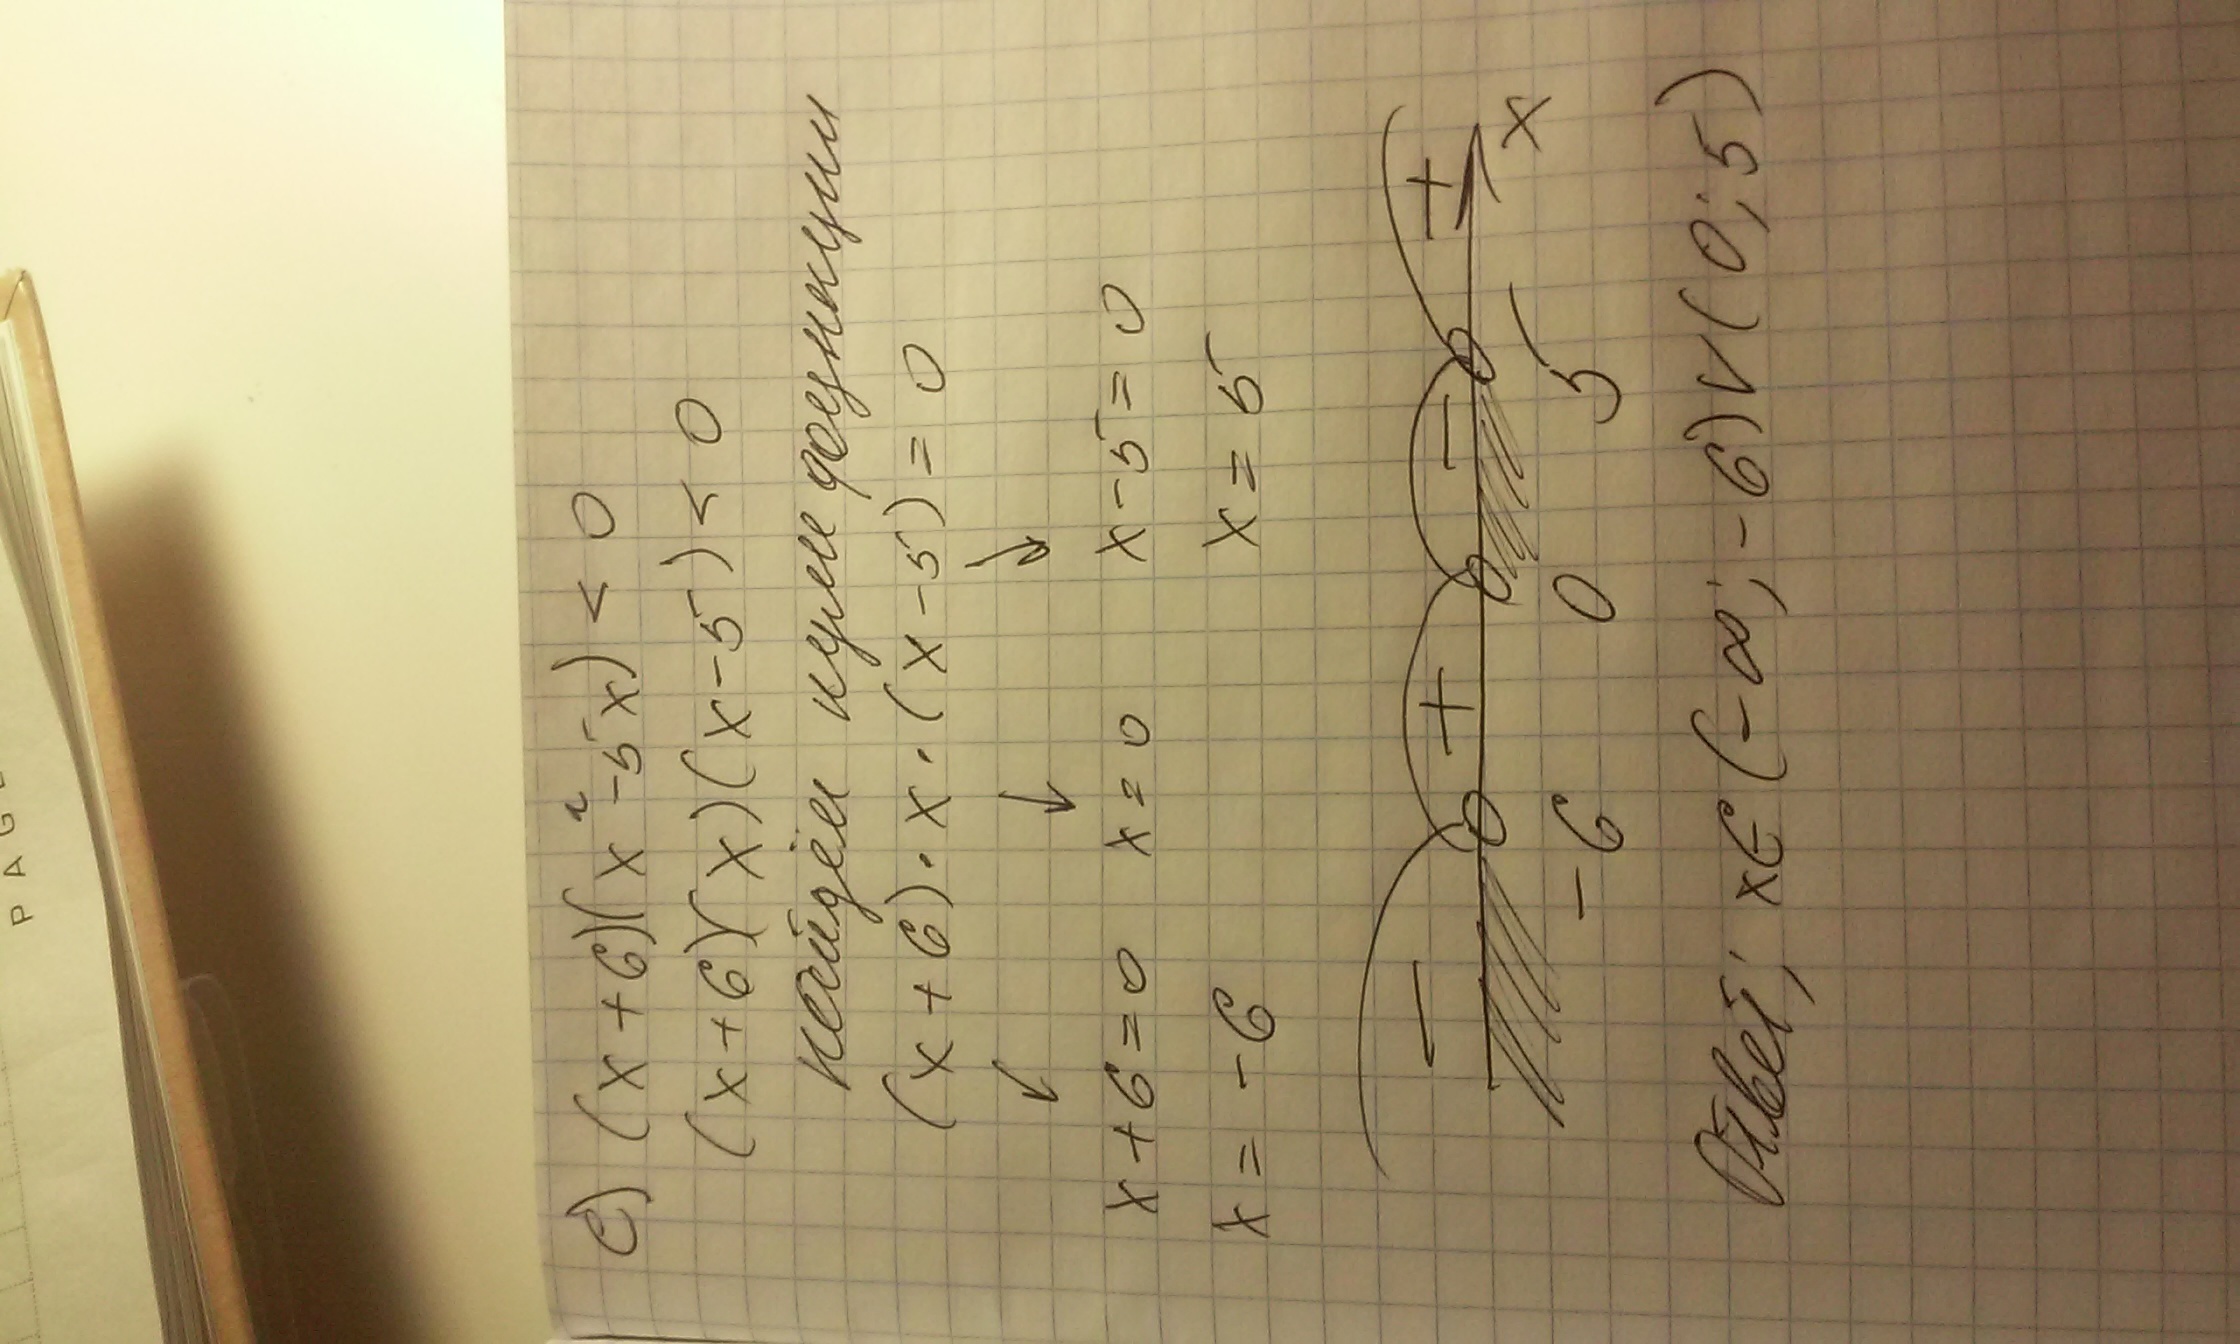 PAG
e) (x+6)(x²-5x)<0
(x+6)(x)(x-5)<0
найдём нули функции
(x+6)·x·(x-5)=0
↙ ↓ ↘
x+6=0 x=0 x-5=0
x=-6 x=5
- + - +
-6 0 5 x
Ответ; x∈(-∞;-6)∨(0;5)